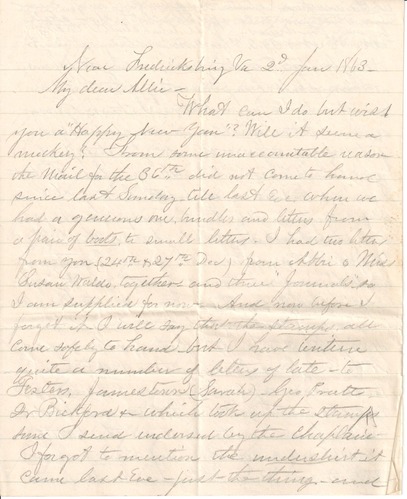 Near Fredericksburg Va 2d Jan 1863-
My dear Allie -
What can I do but wish
you a "Happy New Year"? Will it seem a
mockery? From some unaccountable reason
the Mail for the 36th did not come to hand
since last Sunday till last Eve when we
had a generous one, bundles and letters from
a pair of boots to small letters. I had two letters
from you (24th & 27th Dec) from Abbie & Miss
Susan Waldo, together and three "Journals", so
I am supplied for now - And now before I
forget it I will say that the stamps all
come safely to hand but I have written
quite a number of letters of late - to
Jamestown (Sarah) - Geo.
Dr Bickford & which took up the stamps
and I send endorsed by the Chaplain -
I forgot to mention the undershirt it
came last Eve - just the thing - and